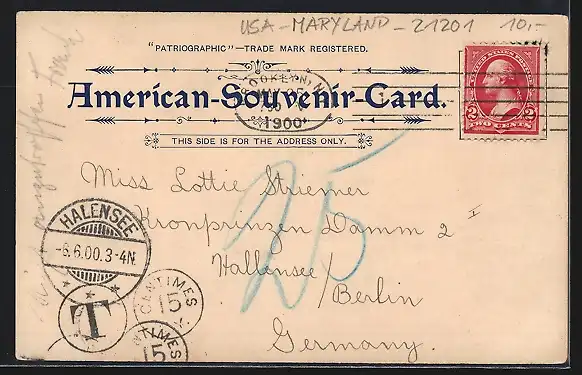 USA - MARYLAND - 21201 10,-
"PATRIOGRAPHIC"—TRADE MARK REGISTERED.
BROOKLYN, N.
MAY 25
1900
American-Souvenir-Card.
THIS SIDE IS FOR THE ADDRESS ONLY.
2 2
TWO CENTS
25
Miss Lottie Striemer
Kronprinzen Damm 2 I
Hallensee/Berlin
Germany.
HALENSEE
-6.6.00.3-4N.
T
CENTIMES
15
CENTIMES
15